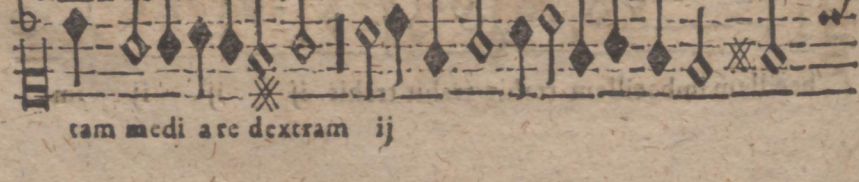 tam medi are dextram ij